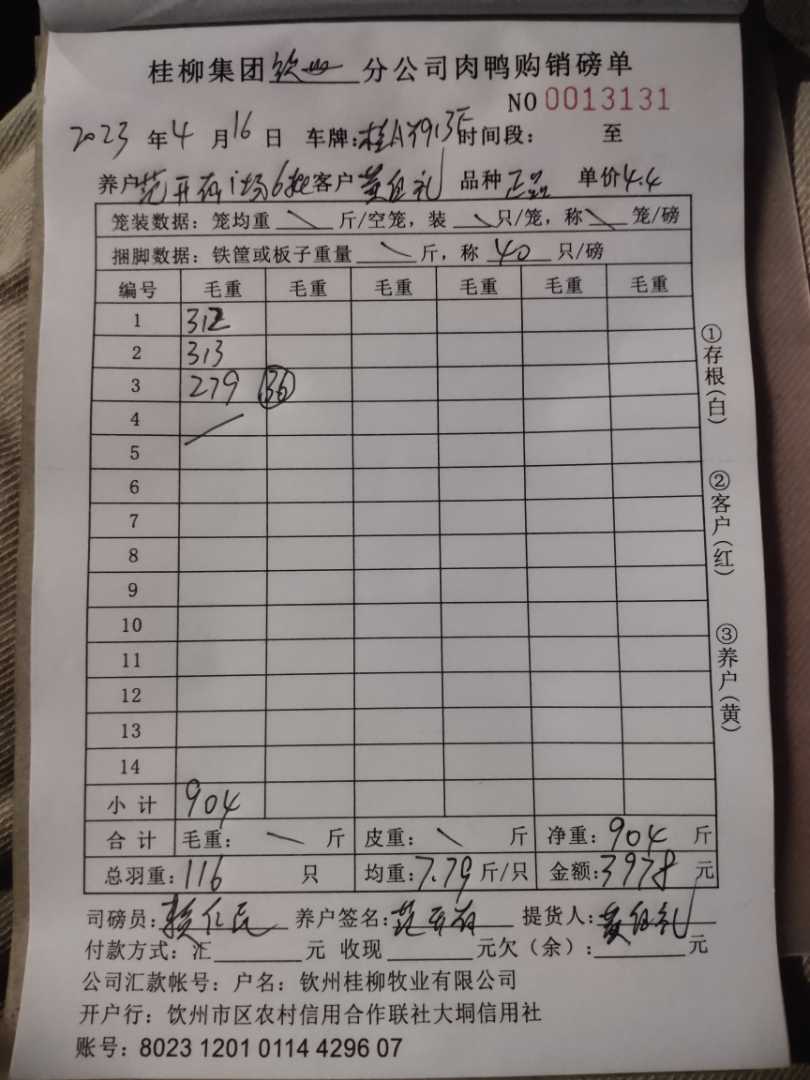 桂柳集团钦州分公司肉鸭购销磅单
NO 0013131
2023 年 4 月 16 日 车牌: 时间段: 至
养户 客户 品种 正品 单价 4.4
笼装数据: 笼均重 \ 斤/空笼, 装 \ 只/笼, 称 \ 笼/磅
捆脚数据: 铁筐或板子重量 \ 斤, 称 40 只/磅
编号 毛重 毛重 毛重 毛重 毛重 毛重
1 312
2 313
3 279 36
4
5
6
7
8
9
10
11
12
13
14
小计 904
合计 毛重: \ 斤 皮重: \ 斤 净重: 904 斤
总羽重: 116 只 均重: 7.79 斤/只 金额: 3978 元
司磅员: 养户签名: 提货人:
付款方式: 汇 元 收现 元欠(余): 元
公司汇款帐号: 户名: 钦州桂柳牧业有限公司
开户行: 钦州市区农村信用合作联社大垌信用社
账号: 8023 1201 0114 4296 07
①存根(白)
②客户(红)
③养户(黄)